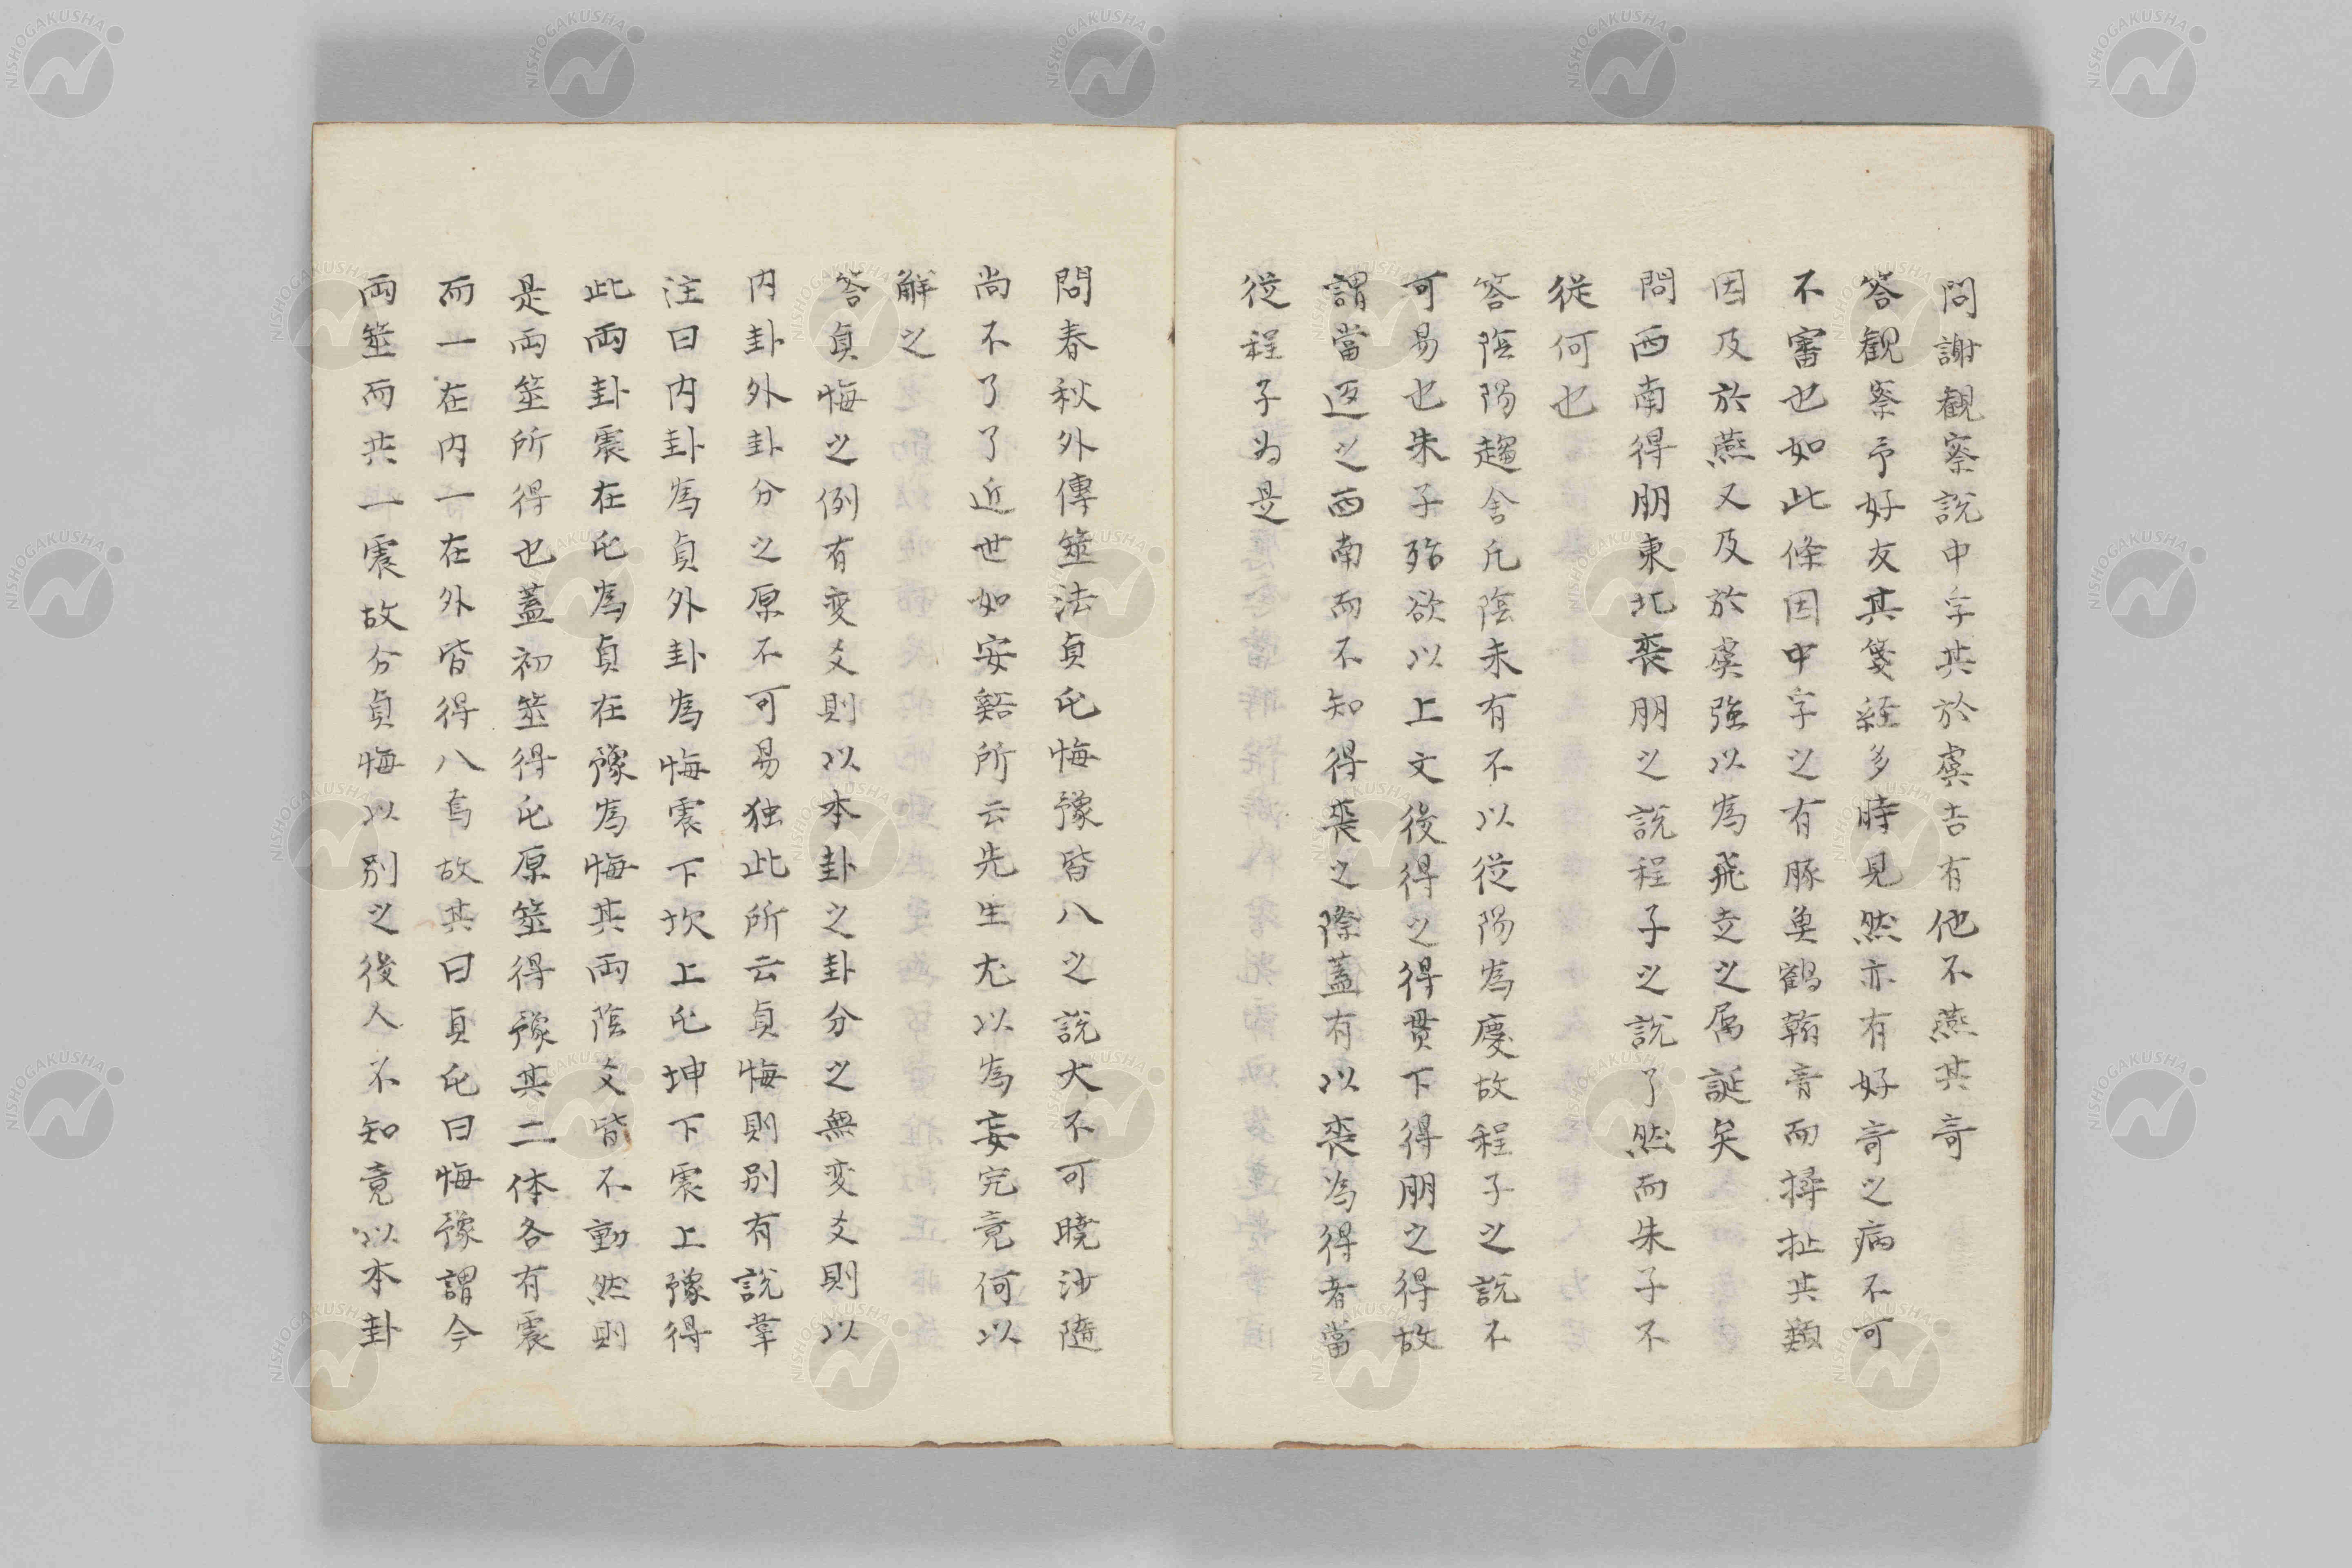 問謝観察説中孚其於虞吉有他不燕其奇
答観察予好友其箋経多時見然亦有好奇之病不可
不審也如此條因中孚之有豚魚鶴翰音而撏扯其類
因及於燕又及於虞強以為飛走之属誕矣
問西南得朋東北喪朋之説程子之説了然而朱子不
従何也
答陰陽趨舎凡陰未有不以従陽為慶故程子之説不
可易也朱子殆欲以上文後得之得貫下得朋之得故
謂當返之西南而不知得喪之際蓋有以喪為得者當
従程子为是
問春秋外傳筮法貞屯悔豫皆八之説大不可暁沙隨
尚不了了近世如安谿所云先生尤以為妄完竟何以
解之
答貞悔之例有変爻則以本卦之卦分之無変爻則以
内卦外卦分之原不可易独此所云貞悔則別有説韋
注曰内卦為貞外卦為悔震下坎上屯坤下震上豫得
此両卦震在屯為貞在豫為悔其両陰爻皆不動然則
是両筮所得也蓋初筮得屯原筮得豫其二体各有震
而一在内一在外皆得八焉故其曰貞屯曰悔豫謂今
両筮而共一震故分貞悔以別之後人不知竟以本卦
NISHOGAKUSHA